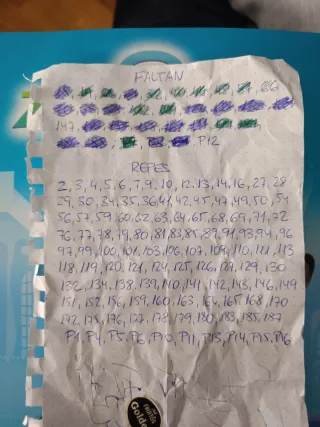 FALTAN
147
P12
REPES
2, 3, 4, 5, 6, 7, 9, 10, 12, 13, 14, 16, 27, 28
29, 30, 34, 35, 36, 41, 42, 45, 47, 49, 50, 54
56, 57, 59, 60, 62, 63, 64, 65, 68, 69, 71, 72
76, 77, 78, 79, 80, 81, 83, 85, 87, 91, 93, 94, 96
97, 99, 100, 101, 103, 106, 107, 109, 110, 111, 113
118, 119, 120, 121, 124, 125, 126, 129, 130
132, 134, 138, 139, 140, 141, 142, 143, 146, 149
151, 152, 156, 159, 160, 163, 165, 168, 170
172, 175, 176, 178, 179, 180, 183, 185, 187
P1, P4, P5, P6, P10, P11, P13, P14, P15, P16
Golde